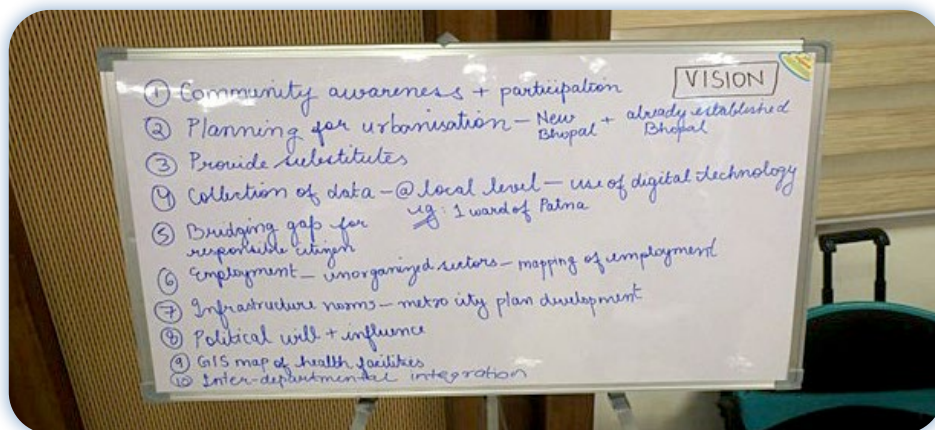 VISION
① Community awareness + participation
② Planning for urbanisation – New Bhopal + already established Bhopal
③ Provide substitutes
④ Collection of data – @ local level – use of digital technology
eg: 1 ward of Patna
⑤ Bridging gap for
responsible citizen
⑥ Employment – unorganized sectors – mapping of employment
⑦ Infrastructure norms – metro city plan development
⑧ Political will + influence
⑨ GIS map of health facilities
⑩ Inter-departmental integration